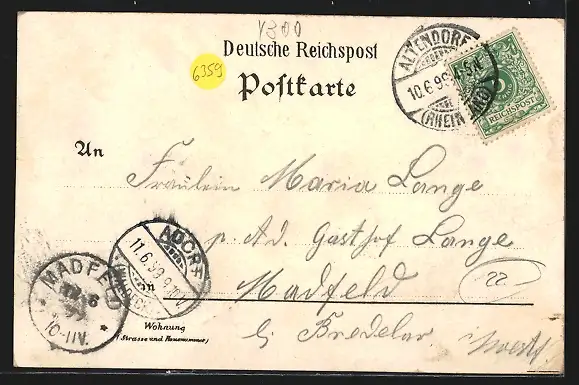 1300
Deutsche Reichspost
6359
Postkarte
ALTENDORF
10.6.99. 4-5N.
(RHEINLAND)
REICHSPOST
An
Fräulein Maria Lange
p. Ad. Gasthof Lange
ADORF
11.6.99.
MADFELD
10-11V.
in Madfeld
22
Wohnung
(Strasse und Hausnummer)
b/ Bredelar, Westf.